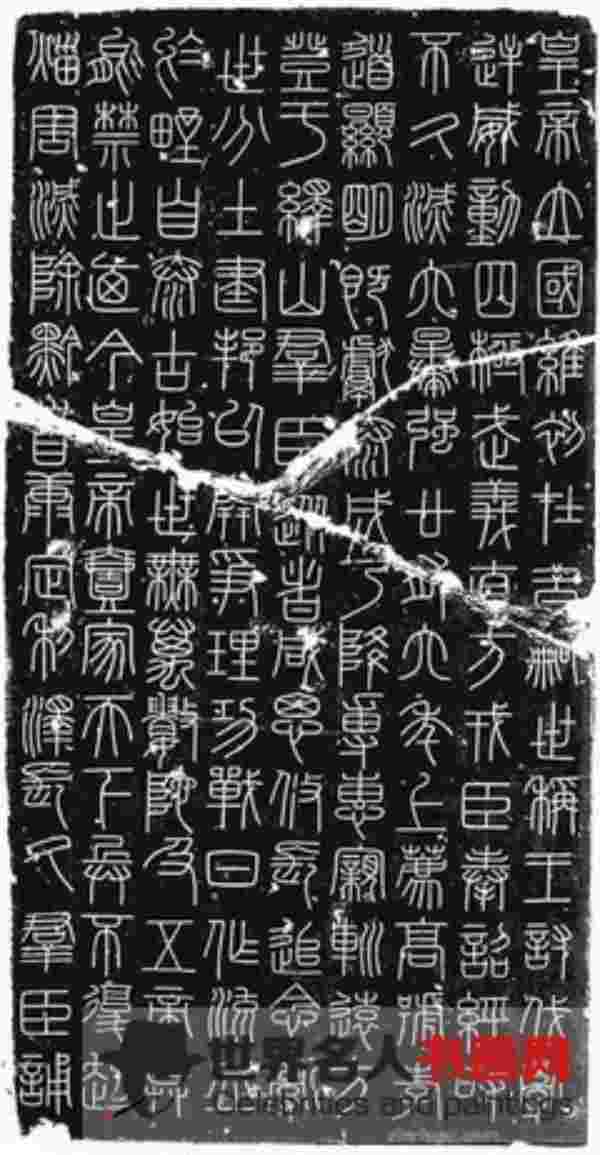 皇帝立國維初在昔嗣世稱王討伐亂
逆威動四極武義直方戎臣奉詔經時
不久滅六暴強廿有六年上薦高號孝
道顯明既獻泰成乃降專惠親巡遠方
登于繹山羣臣從者咸思攸長追念亂
世分土建邦以開爭理功戰日作流血
於野自泰古始世無萬數陀及五帝莫
能禁止迺今皇帝壹家天下兵不復起
災害滅除黔首康定利澤長久羣臣誦
世界名人书画网
Celebrities and paintings